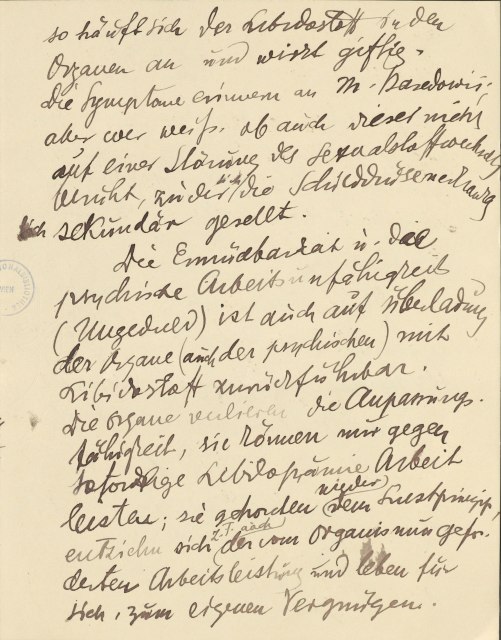 so häuft sich der Libidostoff in den
Organen an und wirkt giftig.
Die Symptome erinnern an M. Basedowii,
aber wer weiß, ob auch dieser nicht
auf einer Störung des Sexualstoffwechsels
beruht, zu der sich die Schilddrüsenerkrankg
sekundär gesellt.
Die Ermüdbarkeit u. die
psychische Arbeitsunfähigkeit
(Ungeduld) ist auch auf Überladung
der Organe (auch der psychischen) mit
Libidostoff zurückführbar.
Die Organe verlieren die Anpassungs-
fähigkeit, sie können nur gegen
sofortige Libidoprämie Arbeit
leisten; sie gehorchen wieder dem Lustprinzip,
entziehen sich z. T. auch der vom Organismus gefor-
derten Arbeitsleistung und leben für
sich, zum eigenen Vergnügen.